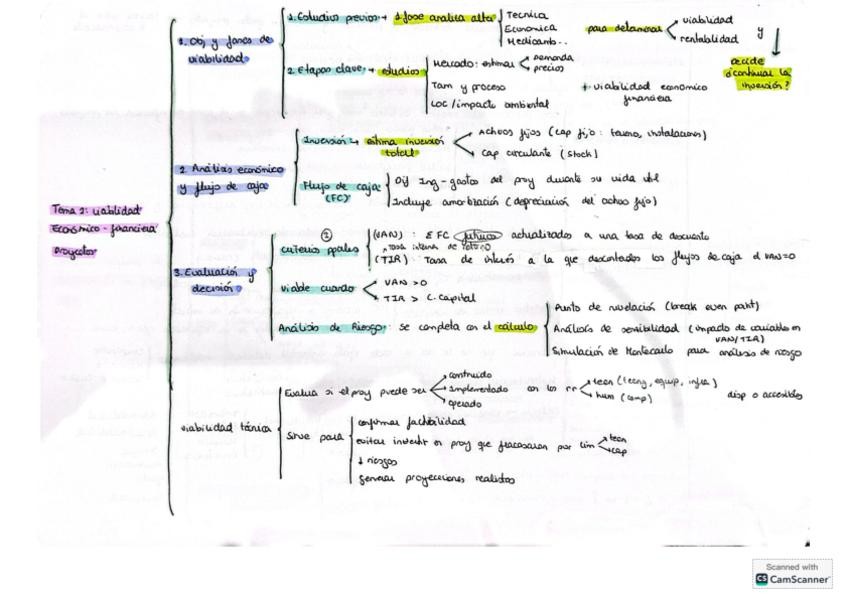 Tema 2: viabilidad
Económico-financiera
proyectos
1. Obj y fases de
viabilidad
1. Estudios previos → 1 fase analiza alta
Técnica
Económica
para determinar
viabilidad
rentabilidad
y
decide
continuar la
inversión?
2. Etapas clave → estudios
Mercado: estimar
demanda
precios
Tam y proceso
Loc/impacto ambiental
+ viabilidad económico
financiera
2. Análisis económico
y flujo de caja
Inversión → estima inversión
total
Activos fijos (cap fijo: terreno, instalaciones)
Cap circulante (stock)
Flujo de caja
(FC)
Dif Ing-gastos del proy durante su vida útil
Incluye amortización (depreciación del activo fijo)
3. Evaluación y
decisión
criterios ppales
(VAN): Σ FC futuros actualizados a una tasa de descuento
Tasa interna de retorno
(TIR): Tasa de interés a la que descontados los flujos de caja el VAN=0
viable cuando
VAN >0
TIR > C. Capital
Análisis de Riesgo: se completa con el cálculo
Punto de nivelación (break even point)
Análisis de sensibilidad (impacto de variables en
VAN/TIR)
Simulación de Montecarlo para análisis de riesgo
viabilidad técnica
Evalua si el proy puede ser
construido
Implementado
operado
con los rr
tecn (tecng, equip, infra)
hum (comp)
disp o accesibles
Sirve para
confirmar factibilidad
evitar invertir en proy que fracasaran por lim
tecn
cap
↓ riesgos
generar proyecciones realistas
Scanned with
CS CamScanner